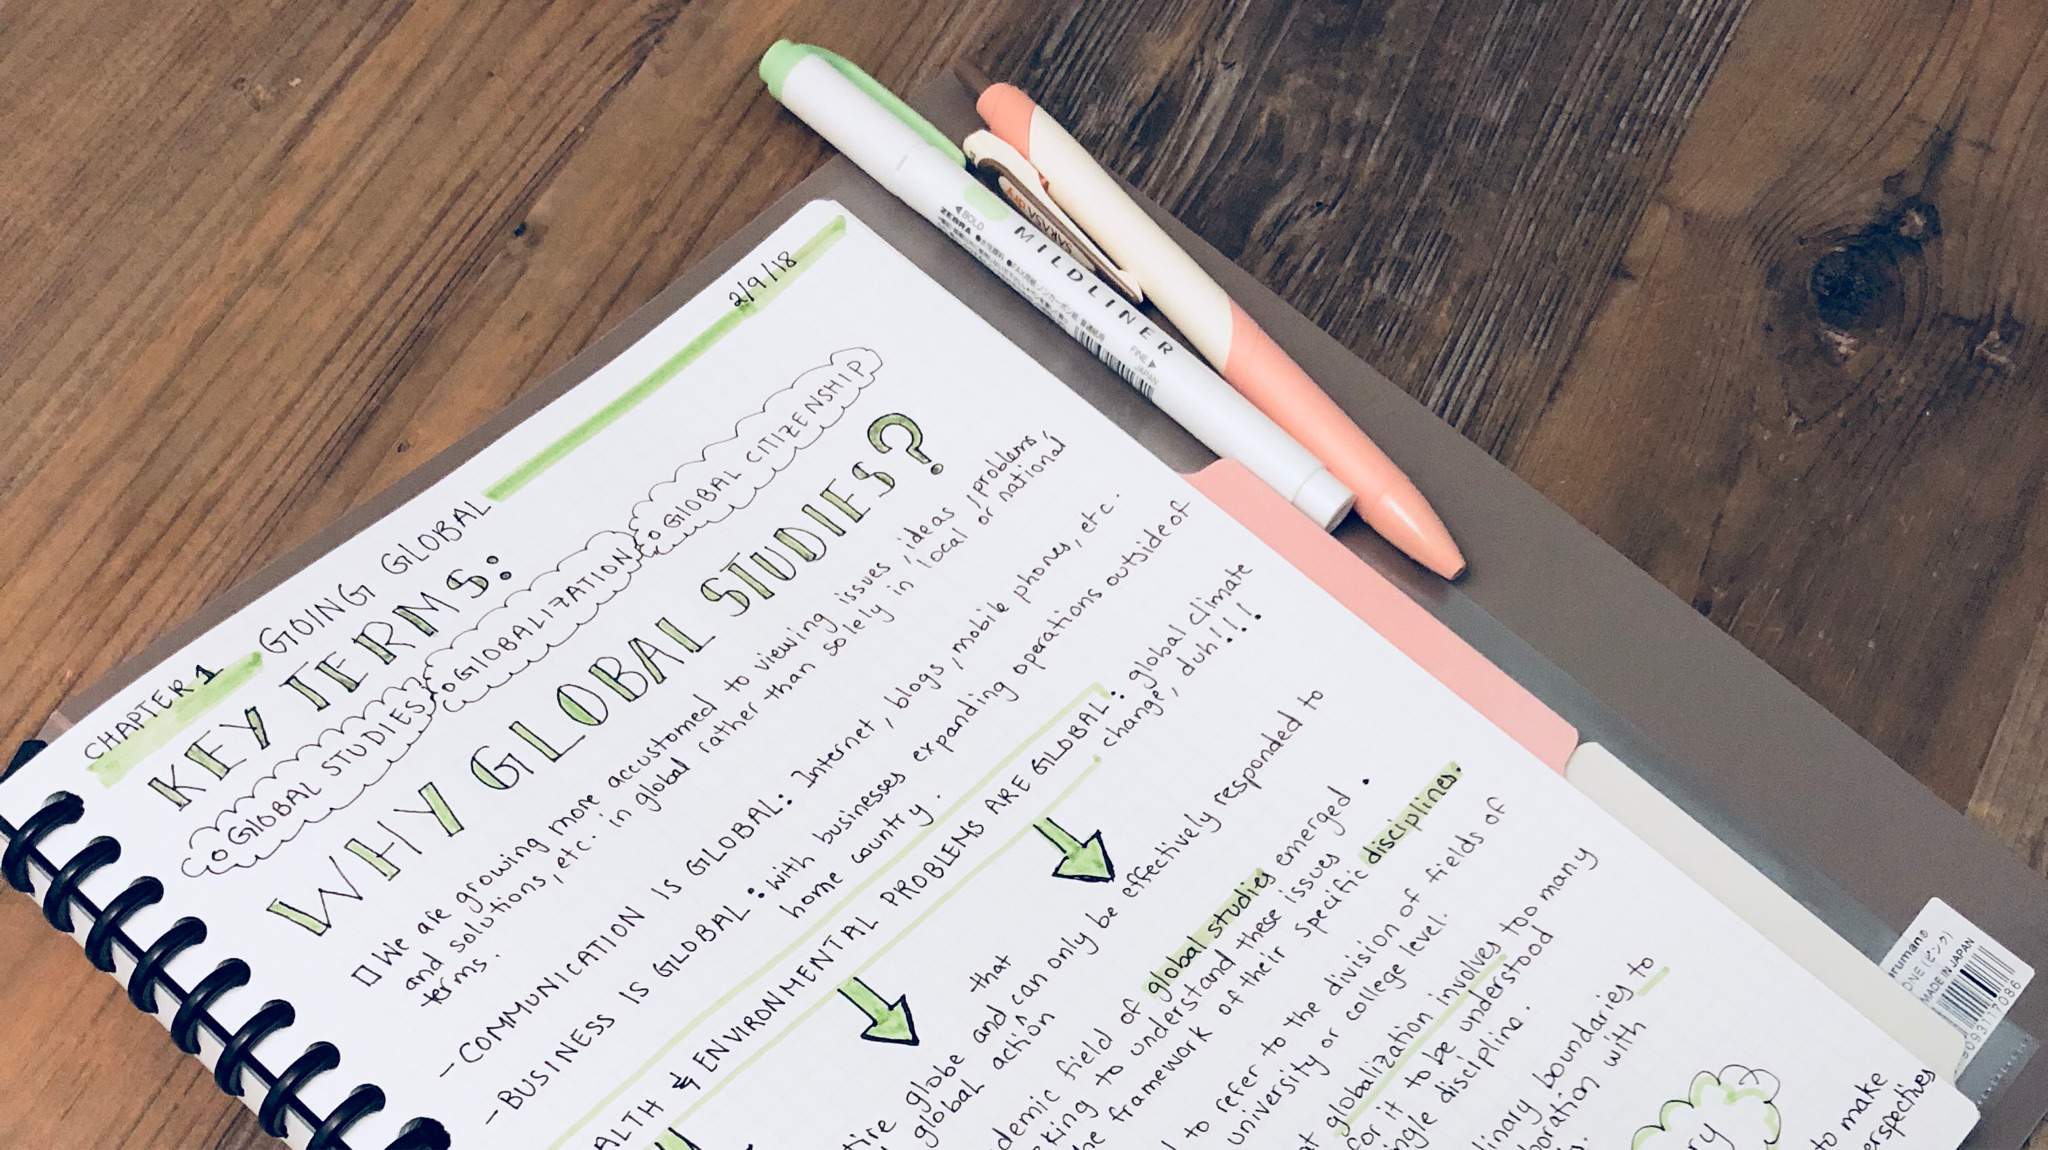 2/9/18
CHAPTER 1 GOING GLOBAL
KEY TERMS:
GLOBAL STUDIES GLOBALIZATION GLOBAL CITIZENSHIP
WHY GLOBAL STUDIES?
We are growing more accustomed to viewing issues, ideas, problems,
and solutions, etc. in global rather than solely in local or national
terms.
-COMMUNICATION IS GLOBAL: Internet, blogs, mobile phones, etc.
-BUSINESS IS GLOBAL: with businesses expanding operations outside of
home country.
& ENVIRONMENTAL PROBLEMS ARE GLOBAL: global climate
change, duh!!!!
that
globe and can only be effectively responded to
global action
field of global studies emerged.
to understand these issues
framework of their specific disciplines.
to refer to the division of fields of
university or college level.
globalization involves too many
for it to be understood
discipline.
boundaries to
with
to make
MILDLINER
BOLD
ZEBRA
FINE
JAPAN
SARASA dry
MADE IN JAPAN